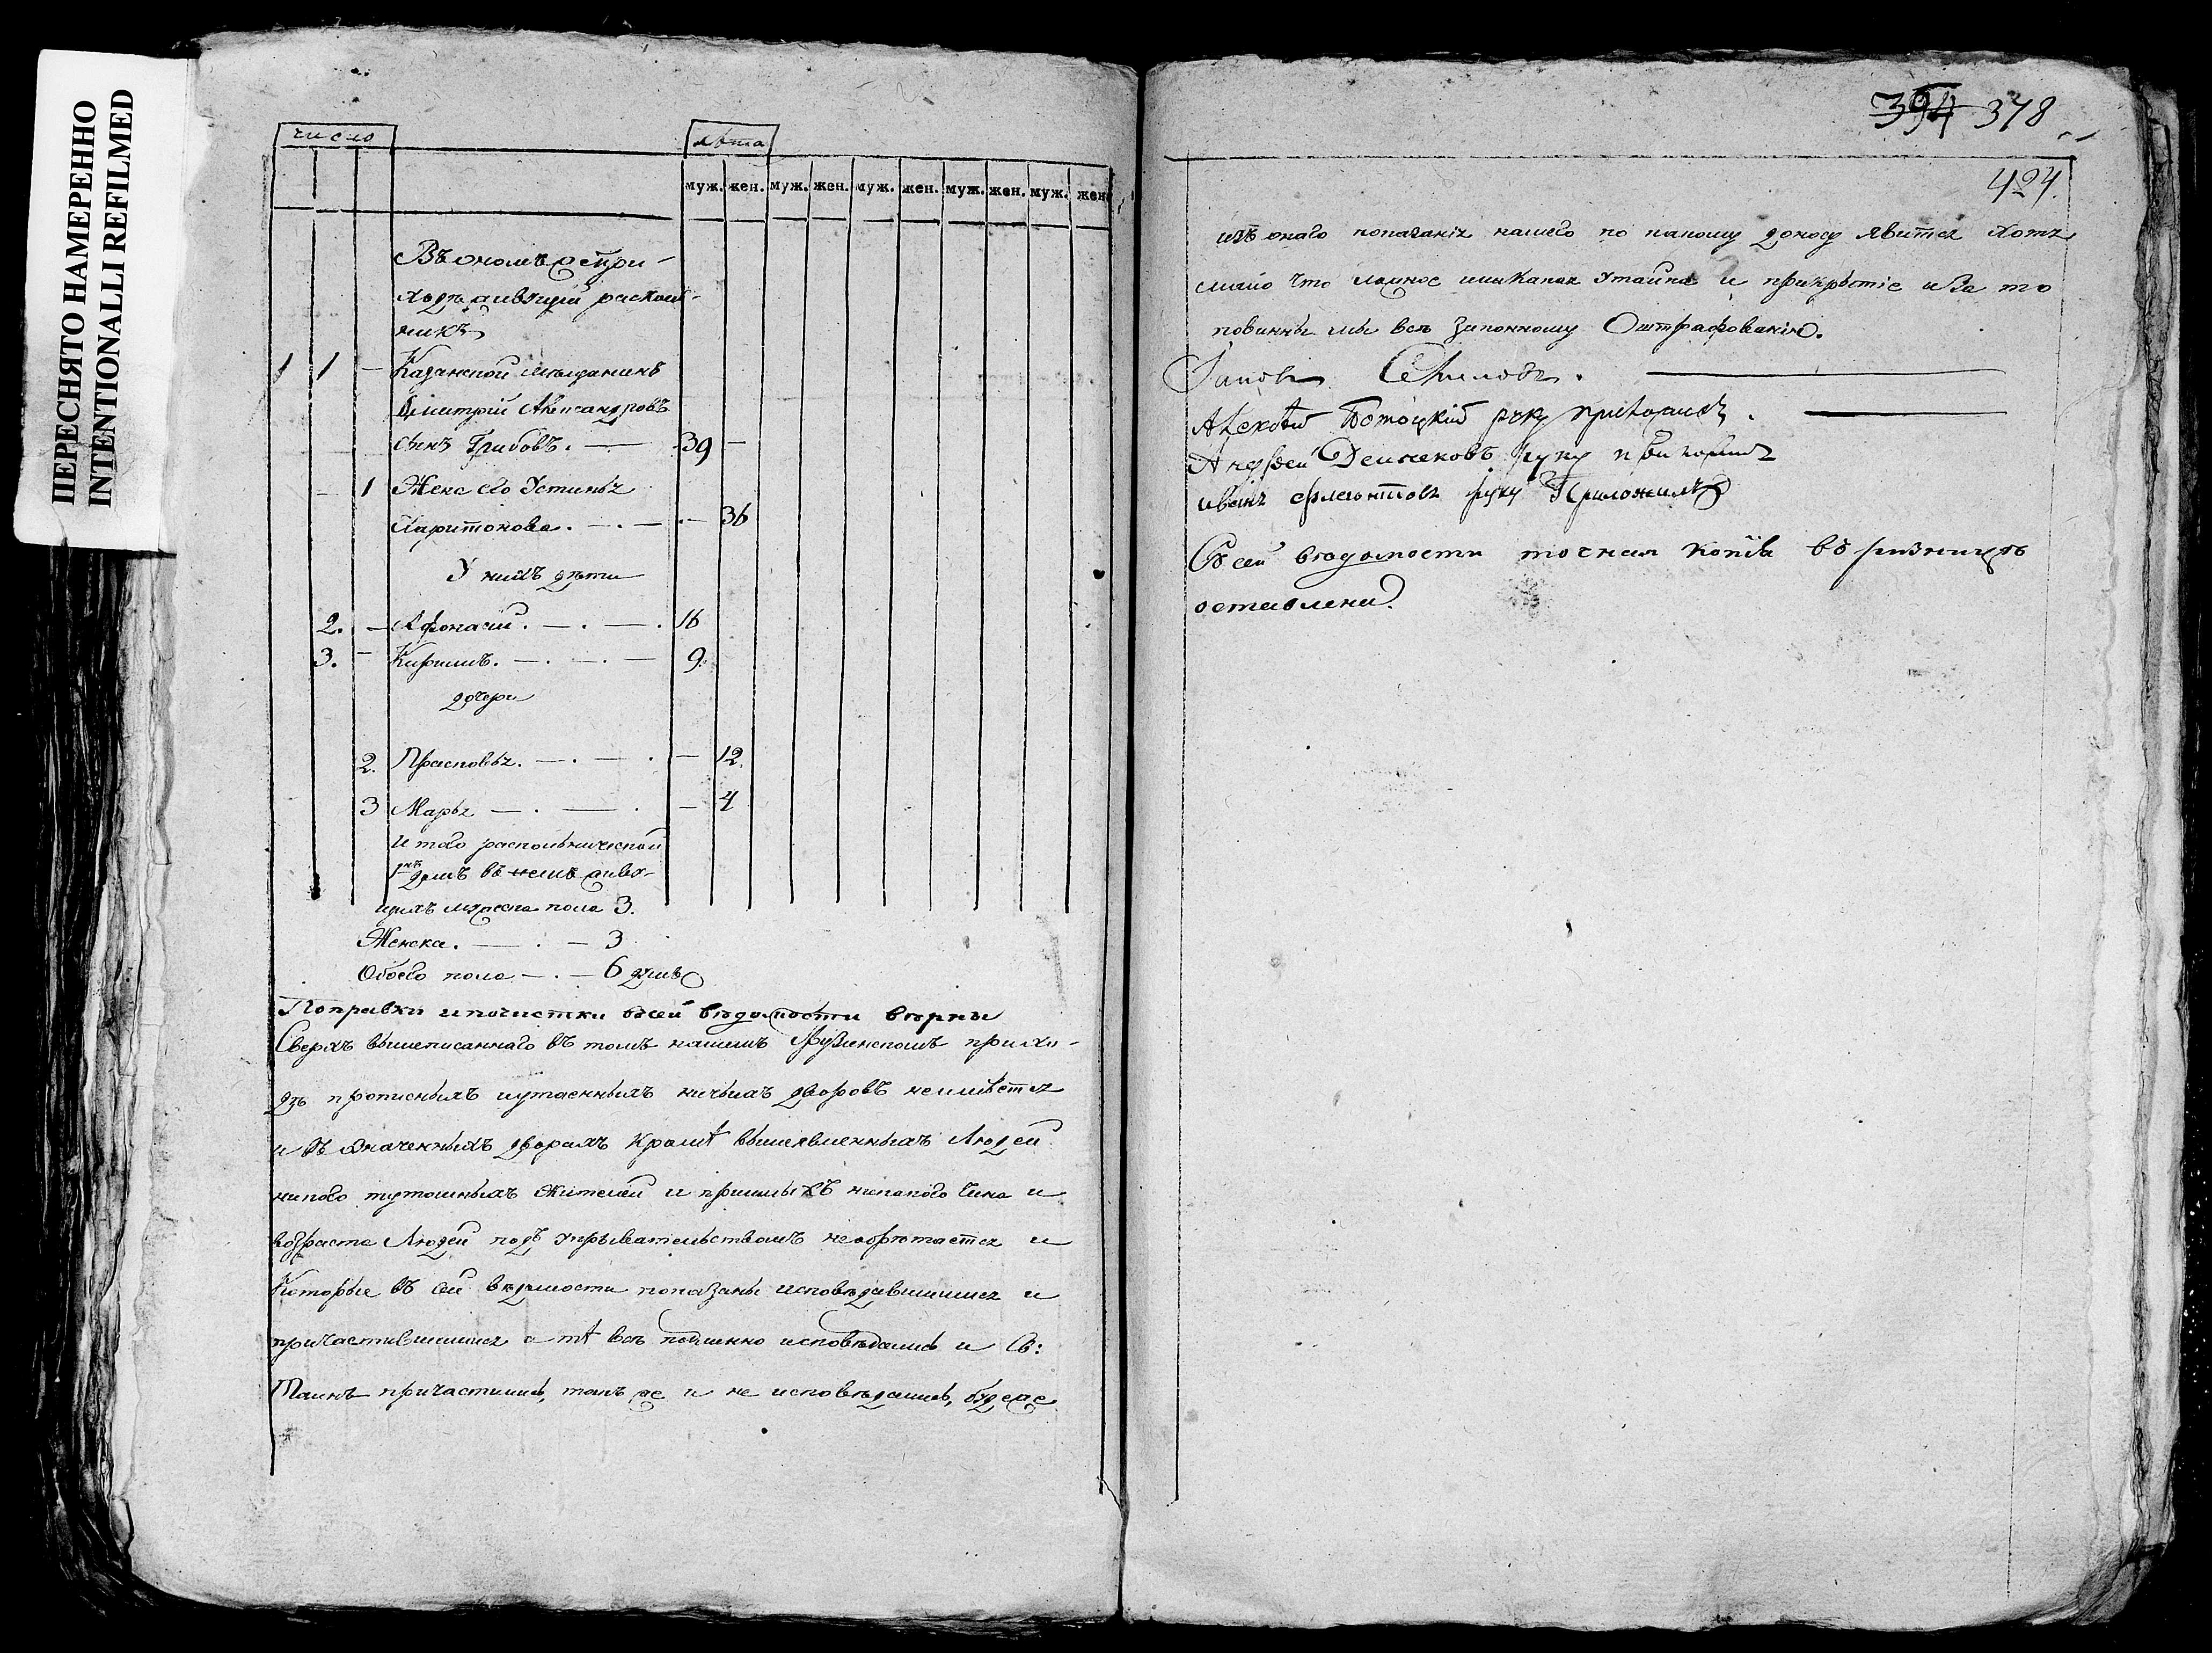 ПЕРЕСНЯТО НАМЕРЕННО
INTENTIONALLI REFILMED
число
лѣта
муж. жен. муж. жен. муж. жен. муж. жен. муж. жен.
Въ ономъ же при-
ходѣ живущiй расколь-
никъ
1 1 — Казанской мѣщанинъ
Дмитрiй Александровъ
сынъ Грибовъ. — 39 —
— 1 Жена его Устинья
Харитонова. — . — . — 36
У нихъ дѣти
2. — Афонасiй. — . — . 16
3. — Кирилъ. — . — . — 9.
дочери
2. Прасковья. — . — . — 12.
3 Марья — . — . — 4
Итого раскольнической
1 домъ въ немъ живу-
щихъ мужеска пола 3.
Женска. — . — 3
Обоего пола — . — 6 душъ
Поправки и почистки в сей вѣдомости вѣрны
Сверхъ вышеписаннаго въ томъ нашемъ приxо-
дѣ прописныхъ и утаенныхъ ничьихъ дворовъ неимѣется
и въ означенныхъ дворахъ кромѣ вышеявленныхъ Людей
никого тутошныхъ жителей и пришлыхъ никакого чина и
возраста Людей подъ укрывательствомъ не обрѣтается и
Которые въ сей вѣдомости показаны исповѣдавшимися и
причастившимися а тѣ всѣ подлинно исповѣдались и Св:
Таинъ причастились, такъ же и не исповѣдались, буде же
394 378
424.
изъ онаго показанiя нашего по какому доносу явится хотя
мало что ложное или какая утайка и прикрытiе и За то
повинны мы всѣ законному Оштрафованiю.
Iаковъ .
Алексѣй руку приложилъ.
Андрей руку приложилъ
Иванъ руку Приложилъ
Съ сей вѣдомости точная копiя въ ризницѣ
оставлена.